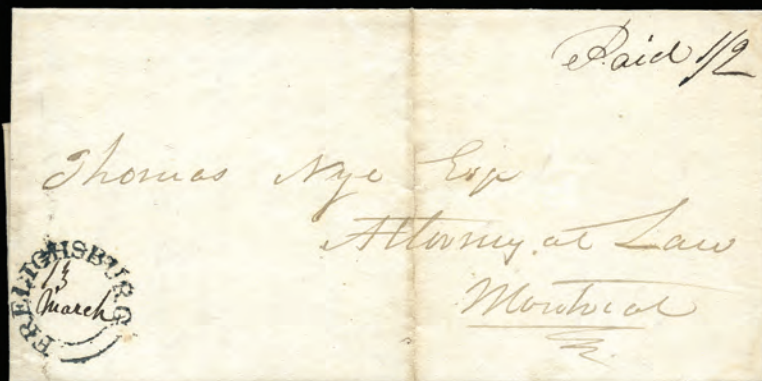 Paid 1/2
Thomas Nye Esqr
Attorney at Law
Montreal
FRELIGHSBURG
13
March